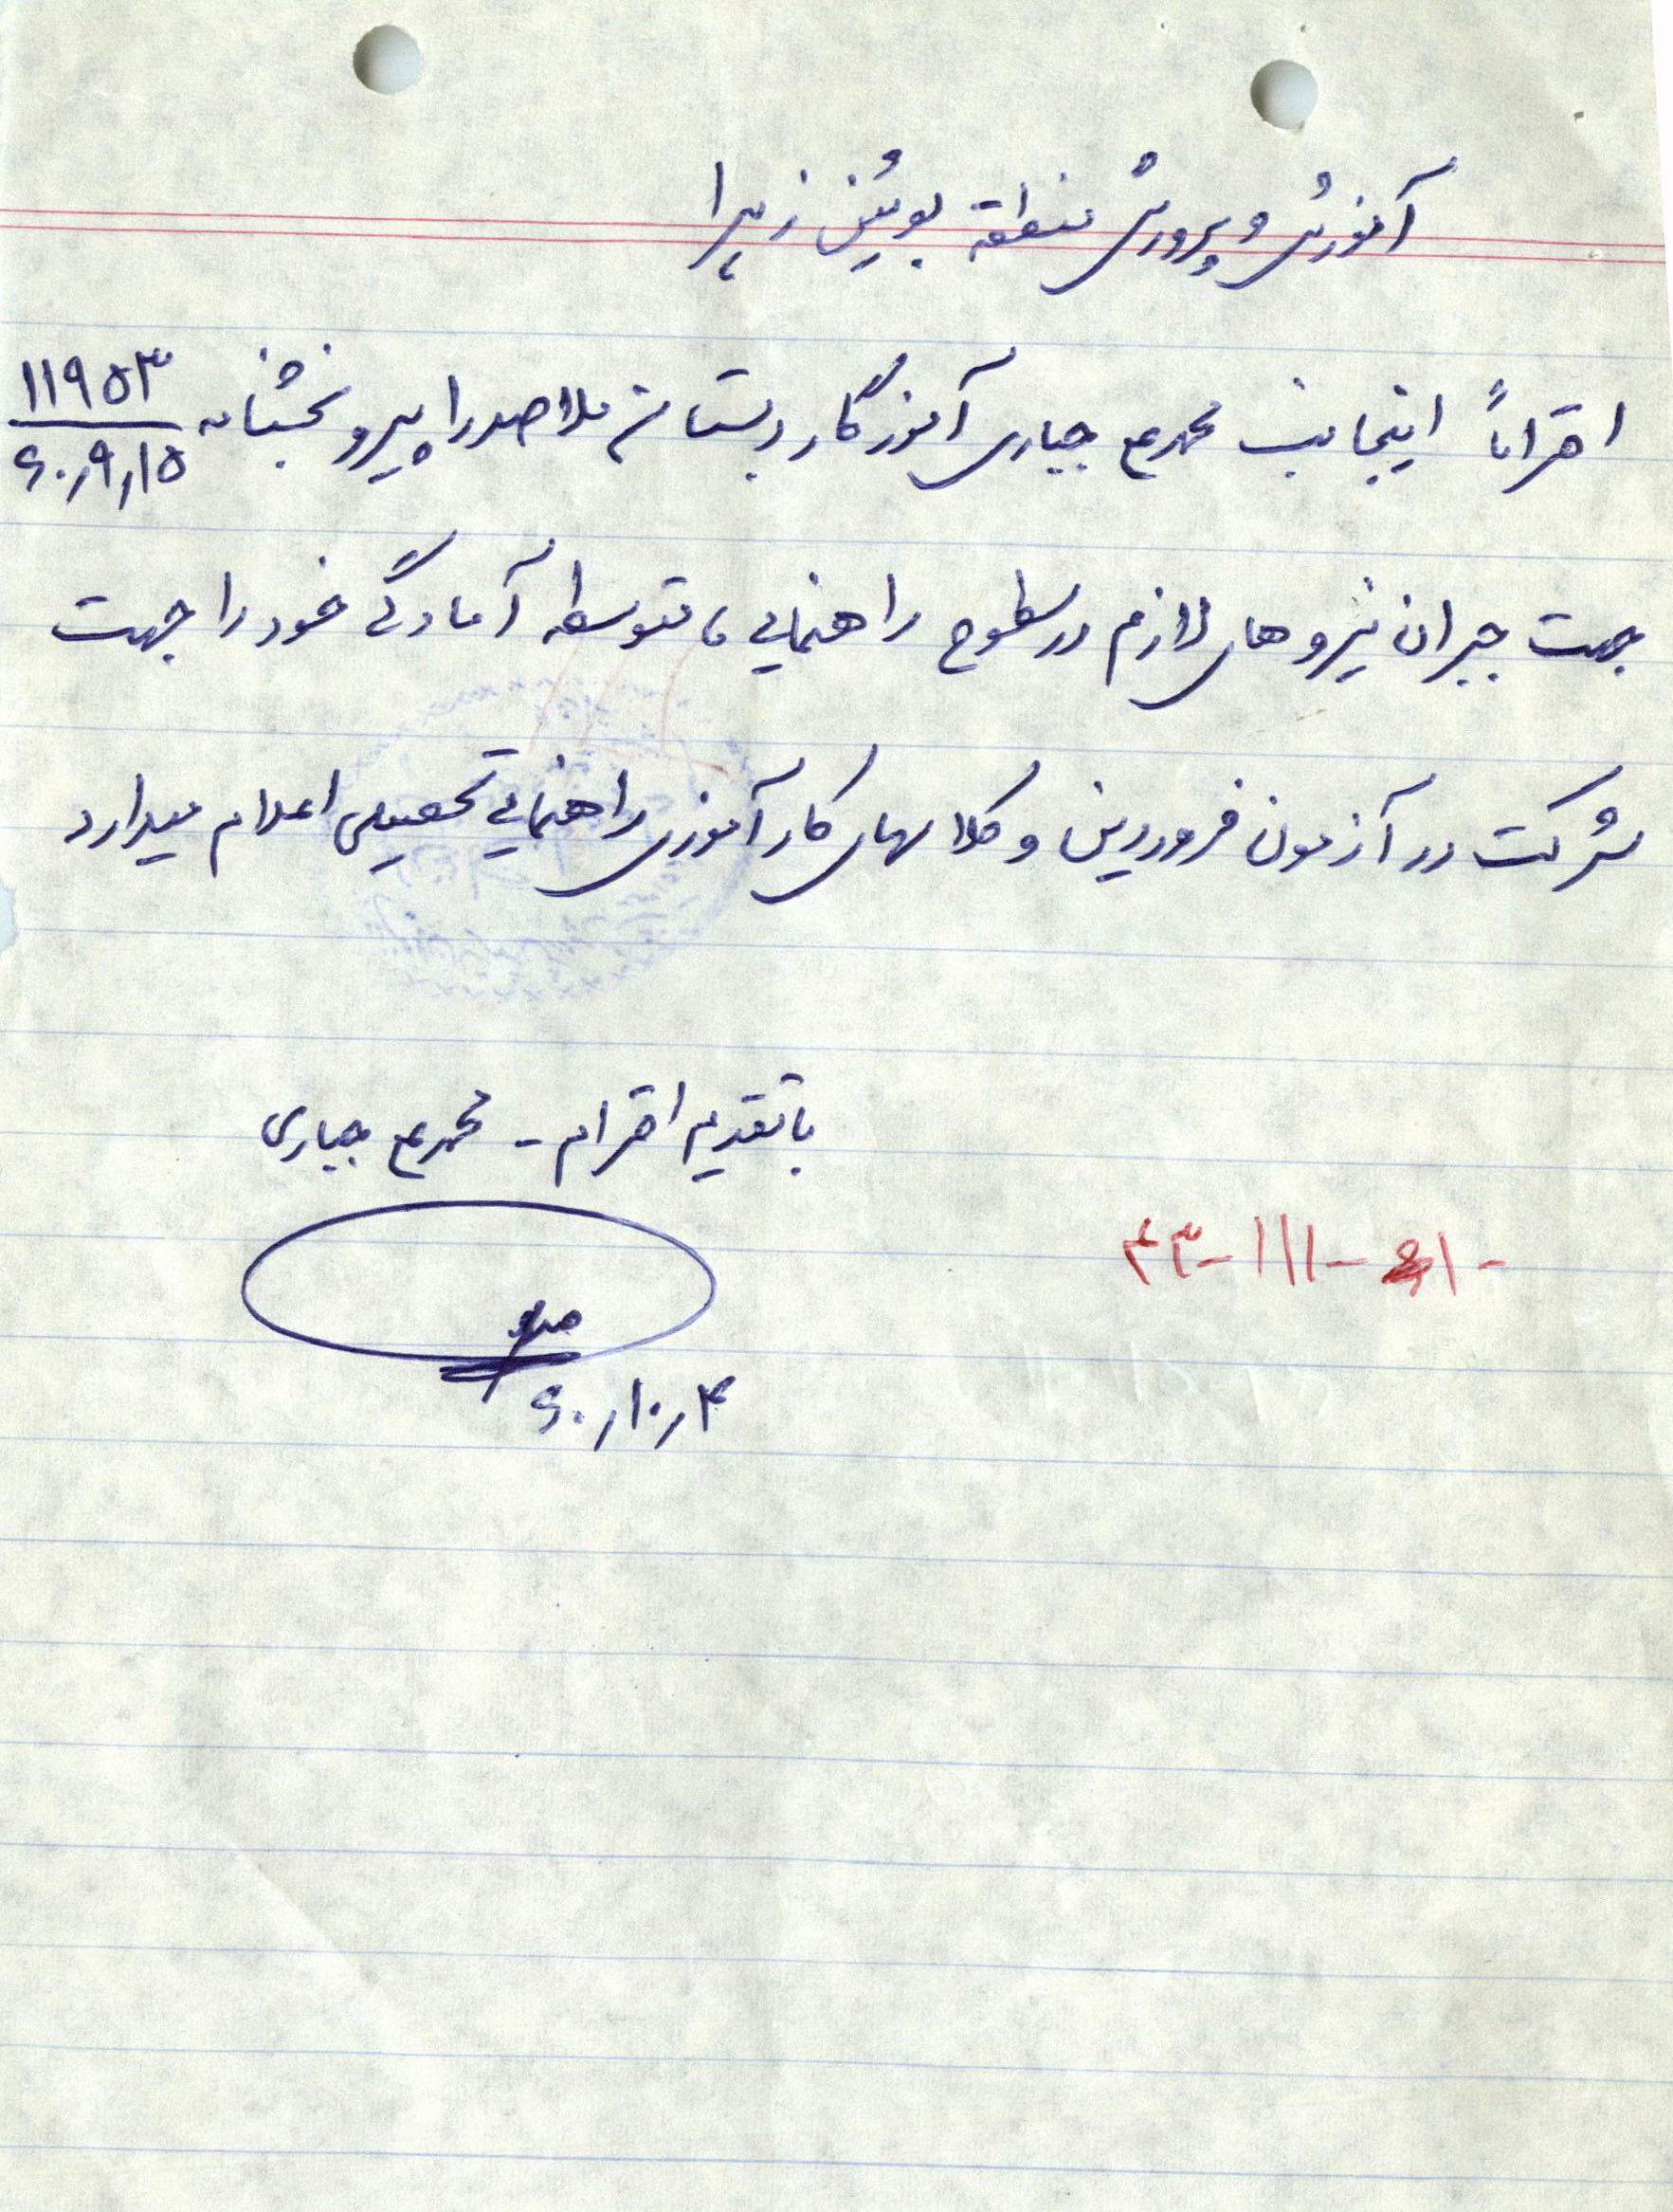 آموزش و پرورش منطقه بوئین زهرا
احتراماً اینجانب محمدع جباری آموزگار دبستان ملاصدرا پیرو بخشنامه ۱۱۹۵۳ / ۶۰٫۹٫۱۵
جهت جبران نیروهای لازم در سطوح راهنمایی ، متوسطه آمادگی خود را جهت
شرکت در آزمون فروردین و کلاسهای کارآموزی راهنمایی تحصیلی اعلام میدارد
با تقدیم احترام - محمدع جباری
۶۰٫۱۰٫۴